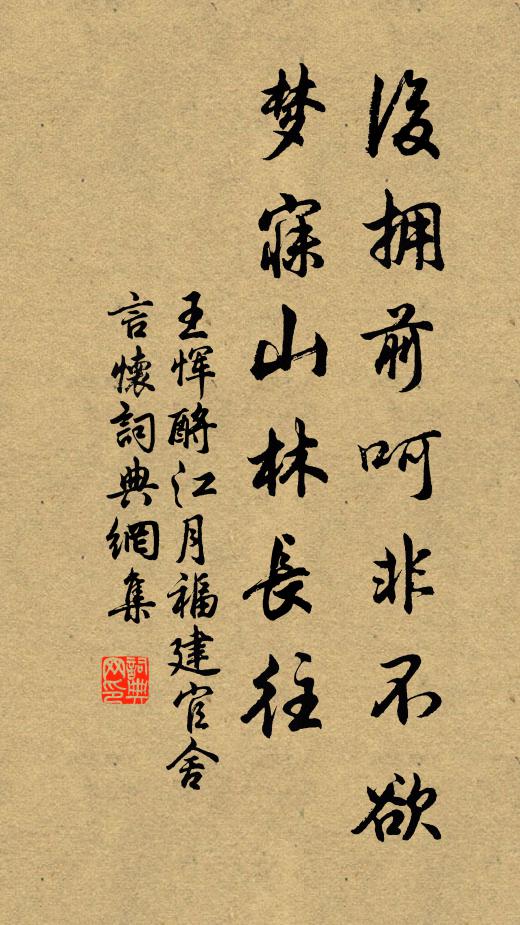 後拥前呵非不欲
梦寐山林長往
王恽酹江月福建官舍
言懷詞典網集
詞典网印